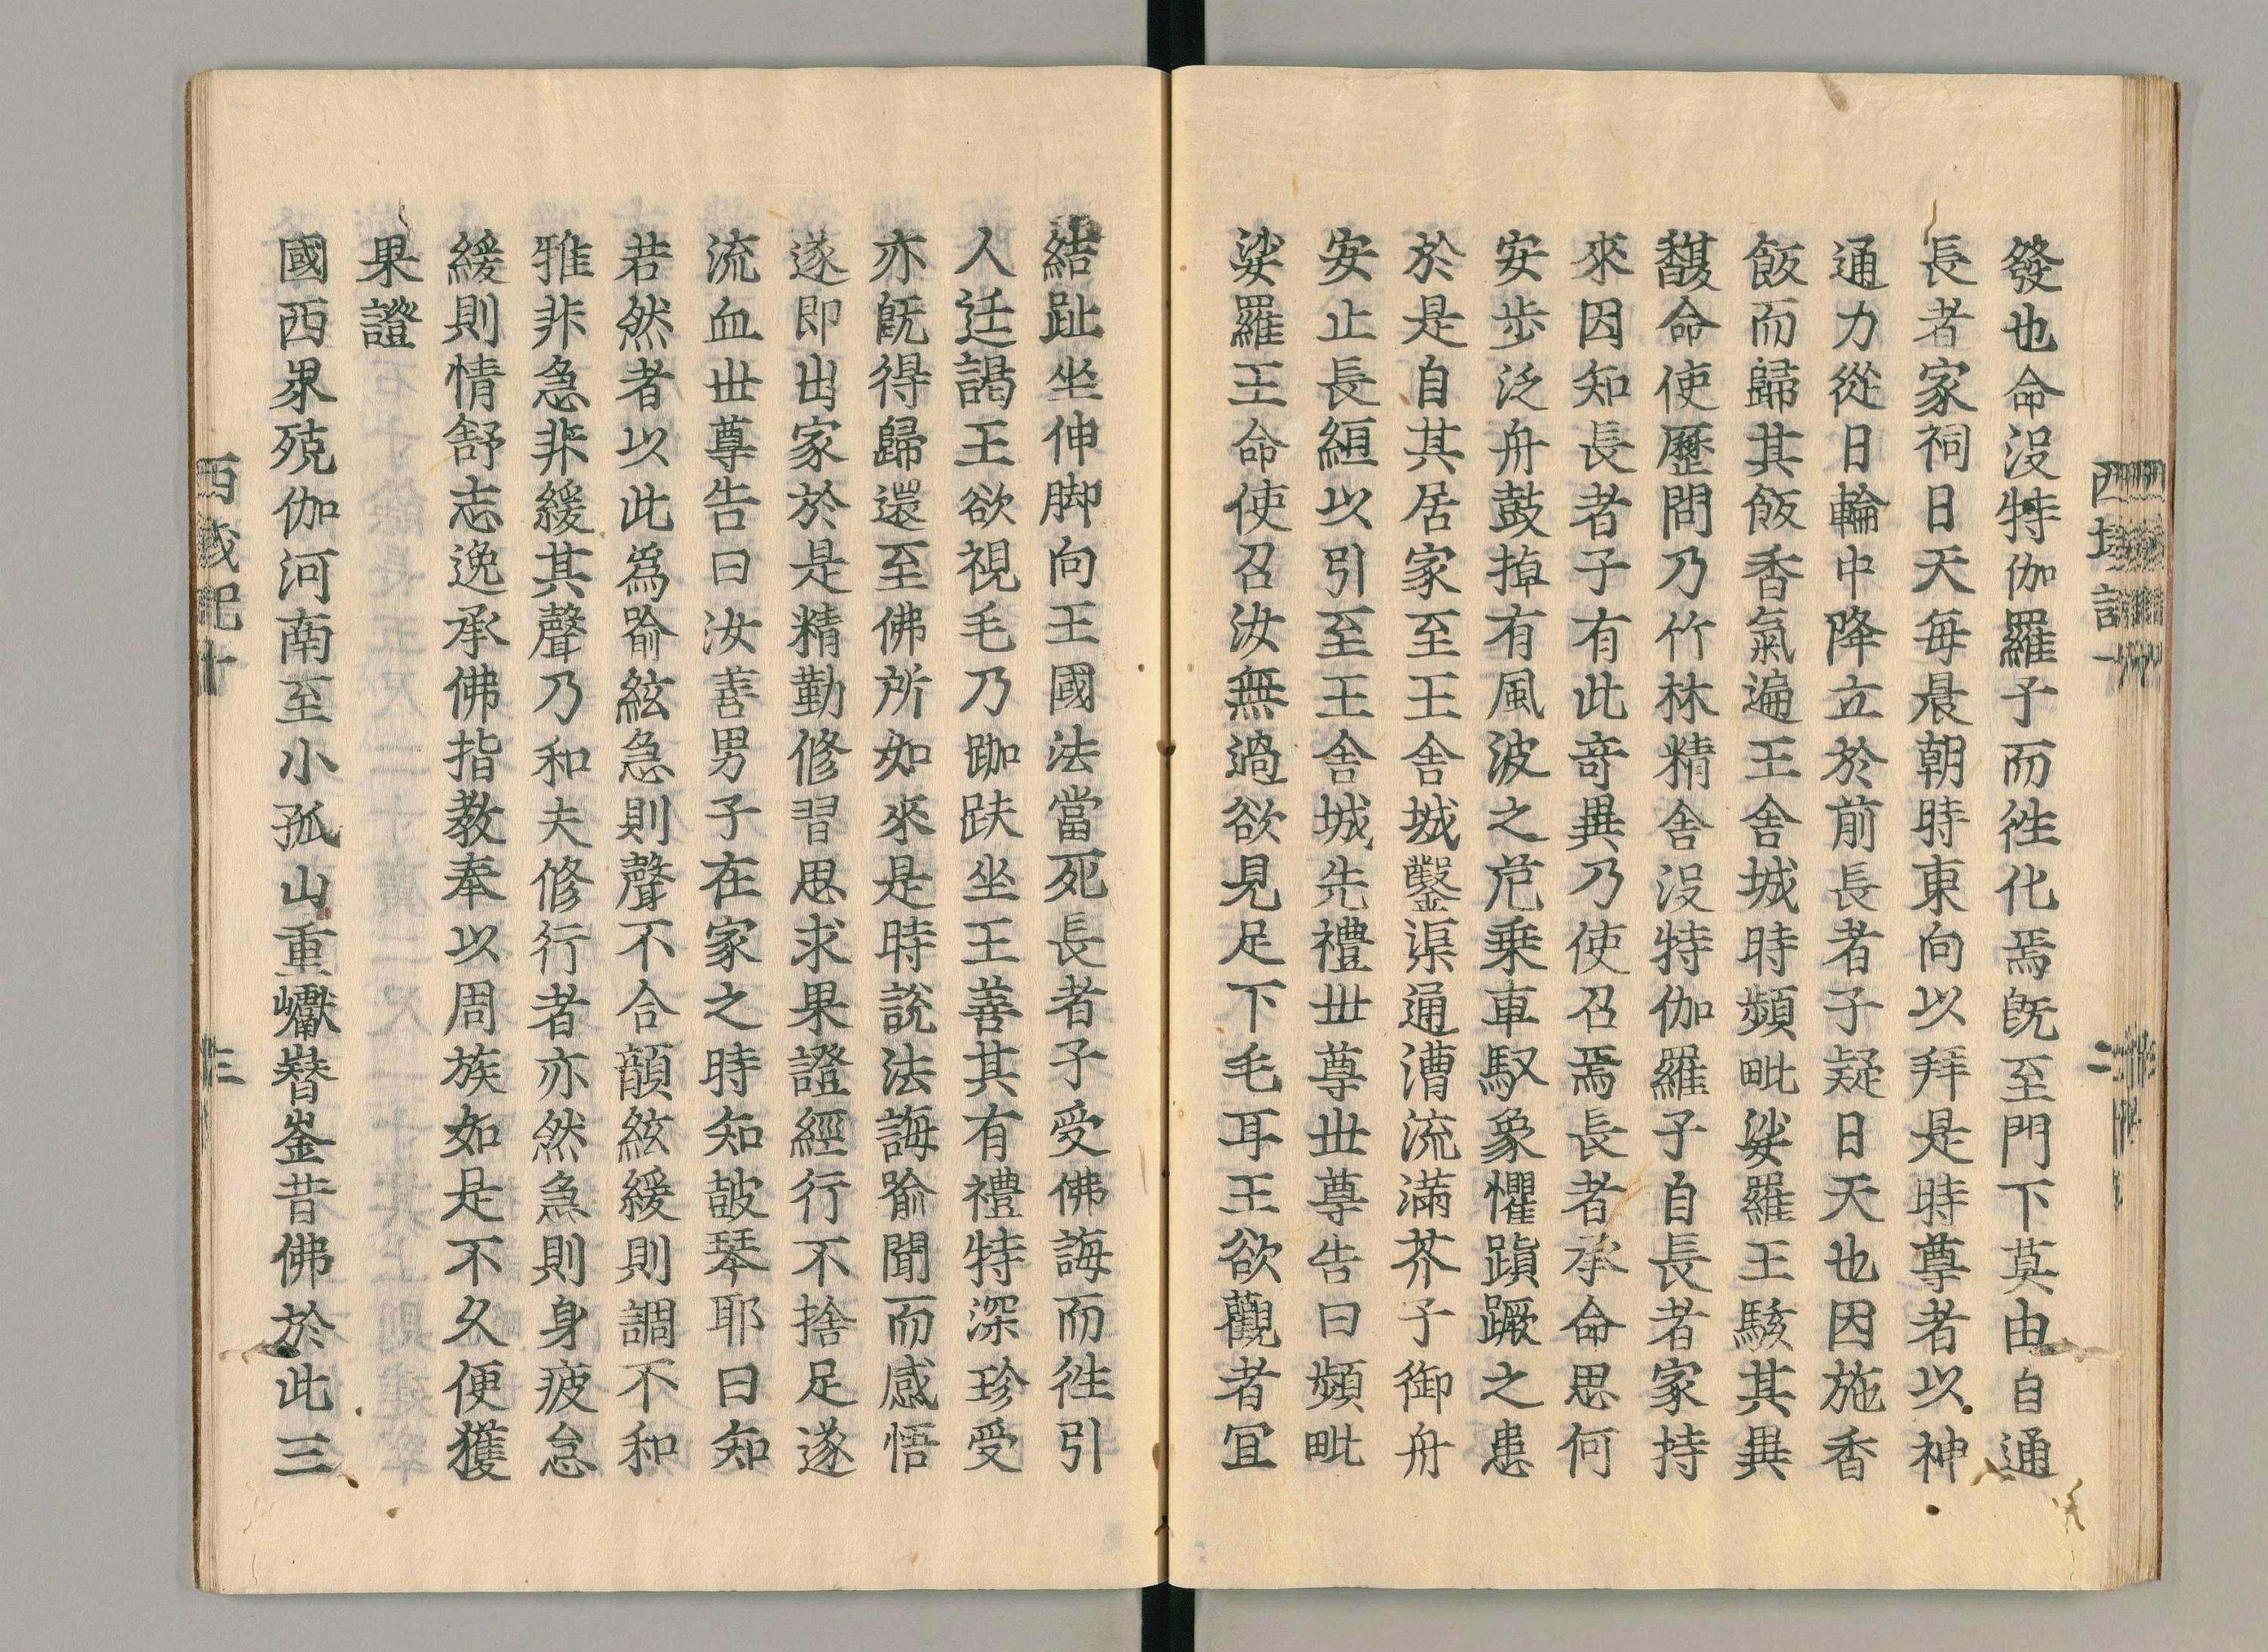 發也命沒特伽羅子而往化焉既至門下莫由自通
長者家祠日天每晨朝時東向以拜是時尊者以神
通力從日輪中降立於前長者子疑日天也因施香
飯而歸其飯香氣遍王舍城時頻毗娑羅王駭其異
馥命使歷問乃竹林精舍沒特伽羅子自長者家持
來因知長者子有此奇異乃使召焉長者承命思何
安步泛舟鼓掉有風波之危乗車馭象懼蹎蹶之患
於是自其居家至王舍城鑿渠通漕流滿芥子御舟
安止長絙以引至王舍城先禮世尊世尊告曰頻毗
娑羅王命使召汝無過欲見足下毛耳王欲觀者宜
結趾坐伸脚向王國法當死長者子受佛誨而往引
人廷謁王欲視毛乃跏趺坐王善其有禮特深珍受
亦既得歸還至佛所如來是時說法誨喻聞而感悟
遂即出家於是精勤修習思求果證經行不捨足遂
流血世尊告曰汝善男子在家之時知鼓琴耶曰知
若然者以此爲喻絃急則聲不合韻絃緩則調不和
雅非急非緩其聲乃和夫修行者亦然急則身疲怠
緩則情舒志逸承佛指教奉以周旋如是不久便獲
果證
國西界殑伽河南至小孤山重巘嶜崟昔佛於此三
西域記十
三